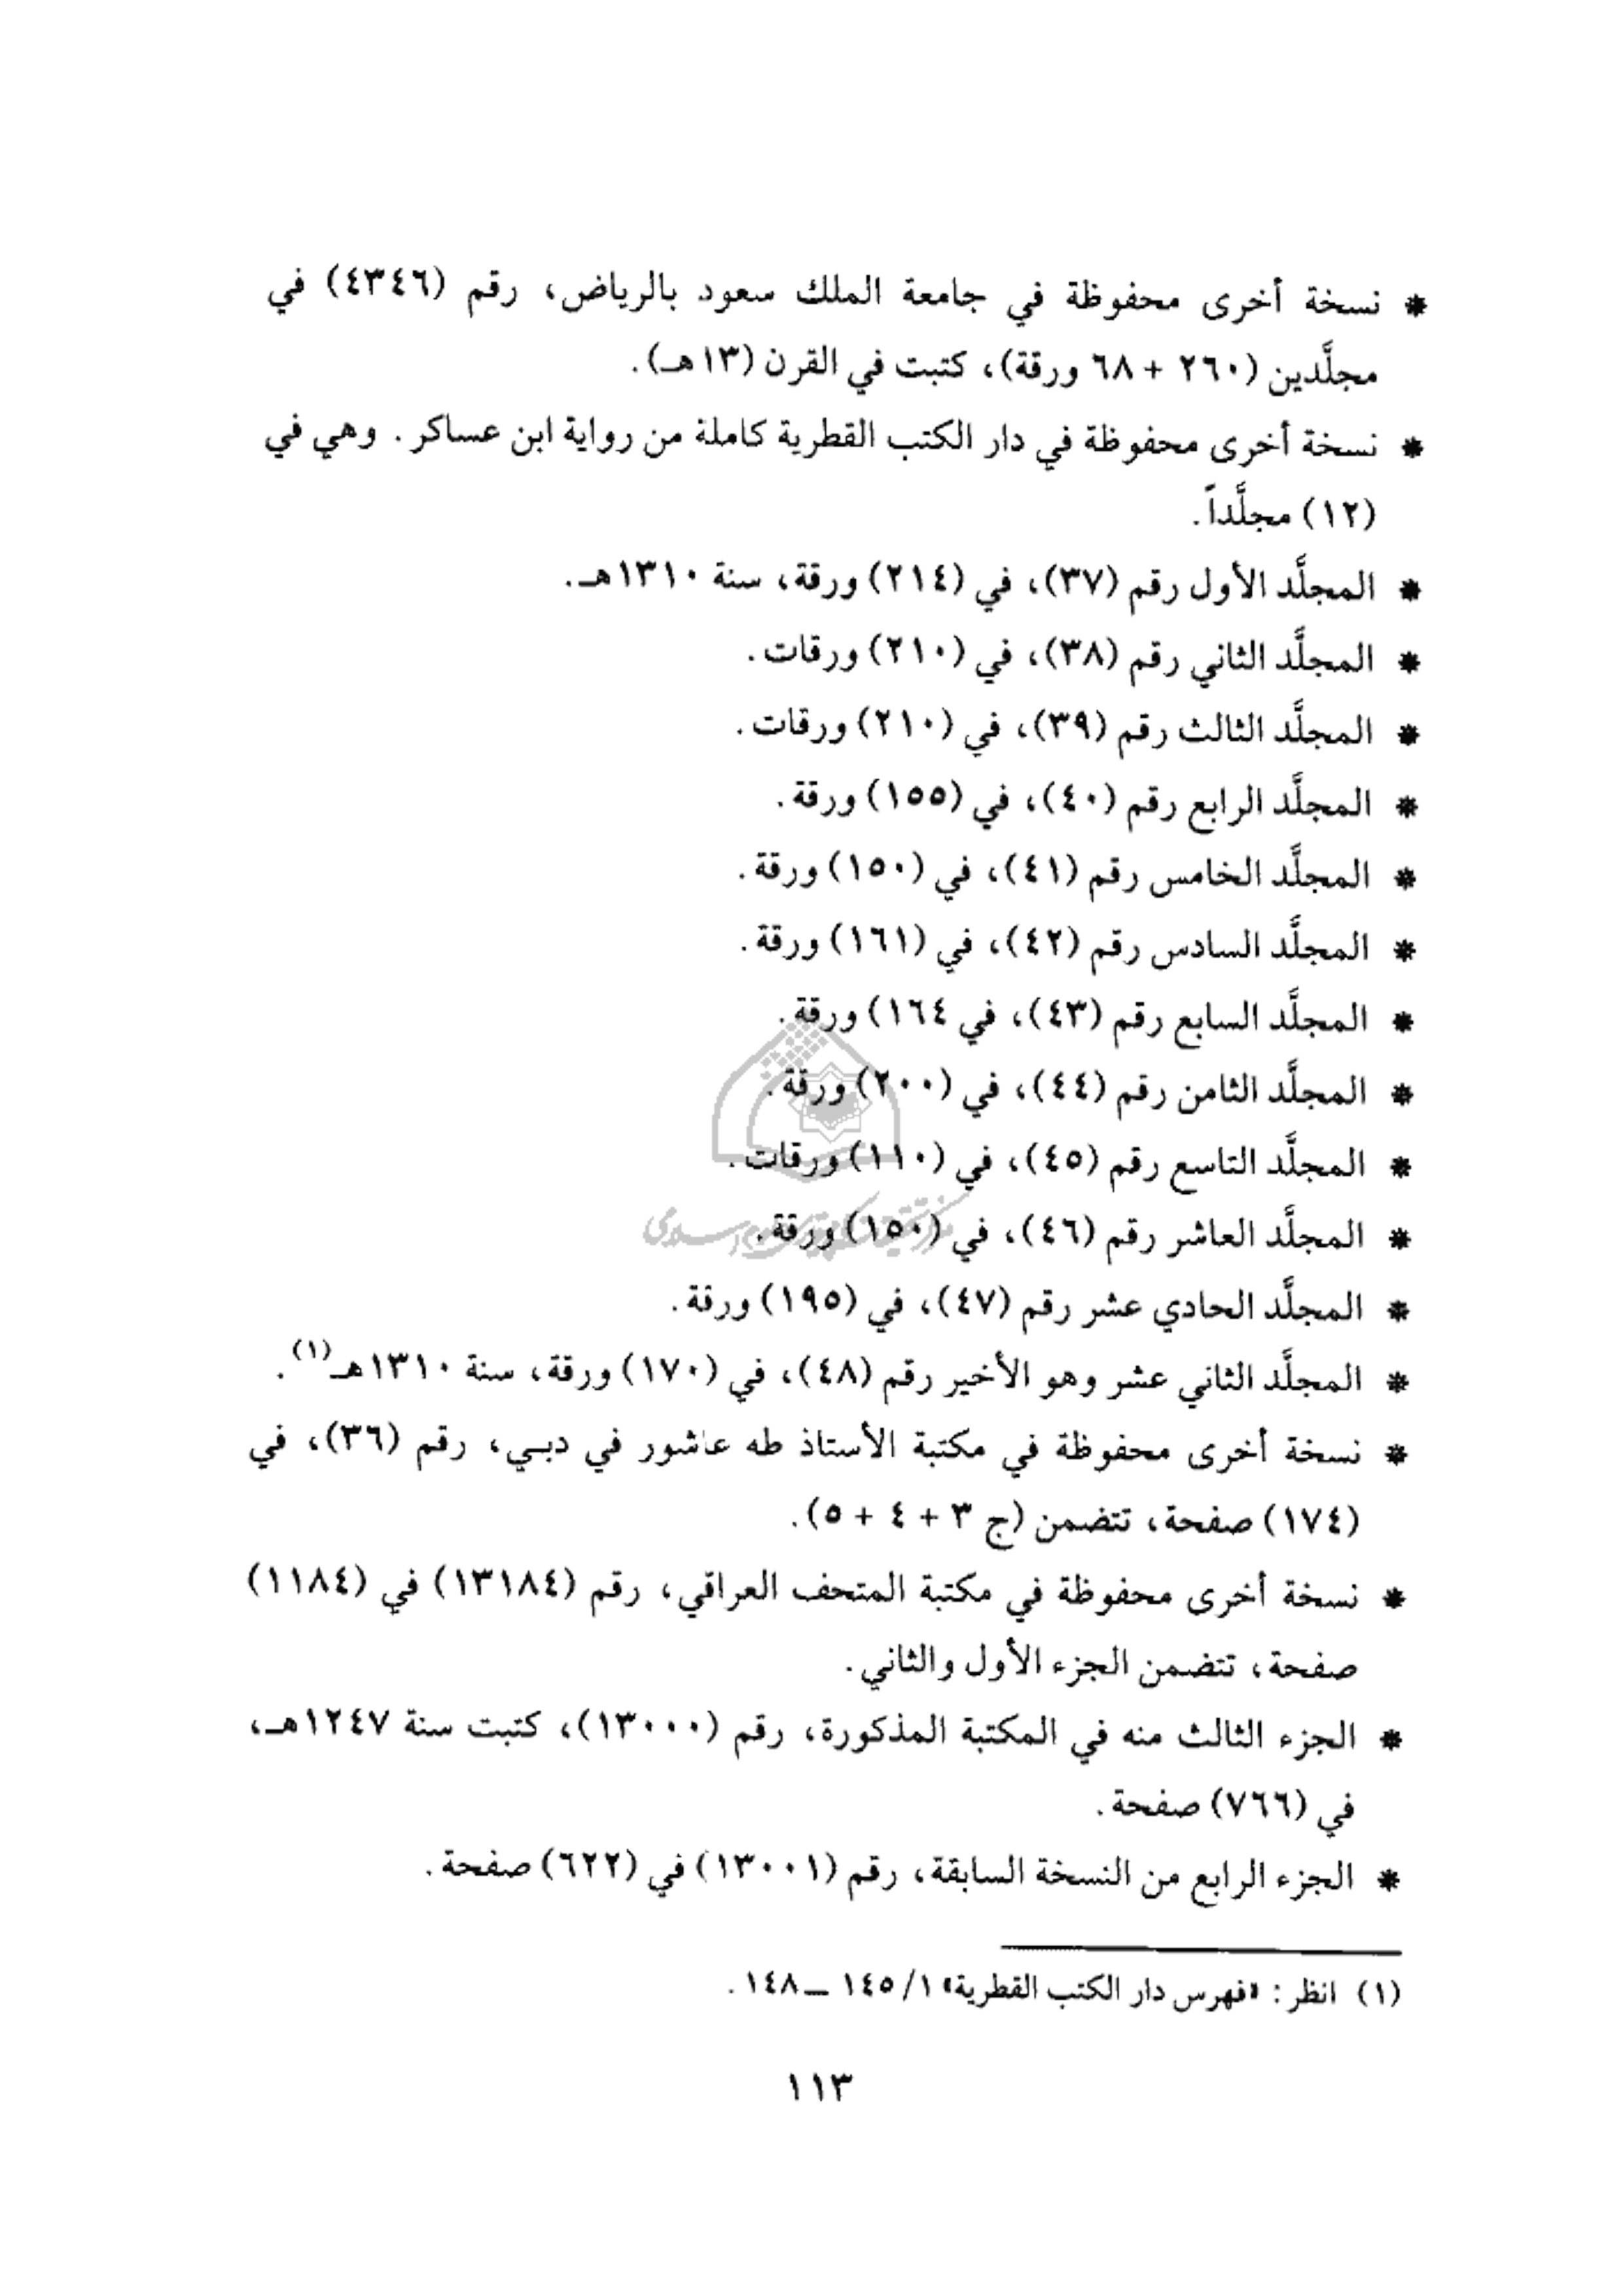 * نسخة أخرى محفوظة في جامعة الملك سعود بالرياض، رقم (٤٣٤٦) في
مجلَّدين (٢٦٠ + ٦٨ ورقة)، كتبت في القرن (١٣هـ).
* نسخة أخرى محفوظة في دار الكتب القطرية كاملة من رواية ابن عساكر. وهي في
(١٢) مجلَّداً.
* المجلَّد الأول رقم (٣٧)، في (٢١٤) ورقة، سنة ١٣١٠هـ.
* المجلَّد الثاني رقم (٣٨)، في (٢١٠) ورقات.
* المجلَّد الثالث رقم (٣٩)، في (٢١٠) ورقات.
* المجلَّد الرابع رقم (٤٠)، في (١٥٥) ورقة.
* المجلَّد الخامس رقم (٤١)، في (١٥٠) ورقة.
* المجلَّد السادس رقم (٤٢)، في (١٦١) ورقة.
* المجلَّد السابع رقم (٤٣)، في ١٦٤) ورقة.
* المجلَّد الثامن رقم (٤٤)، في (٢٠٠) ورقة.
* المجلَّد التاسع رقم (٤٥)، في (١١٠) ورقات.
* المجلَّد العاشر رقم (٤٦)، في (١٥٠) ورقة.
* المجلَّد الحادي عشر رقم (٤٧)، في (١٩٥) ورقة.
* المجلَّد الثاني عشر وهو الأخير رقم (٤٨)، في (١٧٠) ورقة، سنة ١٣١٠هـ(١).
* نسخة أخرى محفوظة في مكتبة الأستاذ طه عاشور في دبـي، رقم (٣٦)، في
(١٧٤) صفحة، تتضمن (ج ٣ + ٤ + ٥).
* نسخة أخرى محفوظة في مكتبة المتحف العراقي، رقم (١٣١٨٤) في (١١٨٤)
صفحة، تتضمن الجزء الأول والثاني.
* الجزء الثالث منه في المكتبة المذكورة، رقم (١٣٠٠٠)، كتبت سنة ١٢٤٧هـ،
في (٧٦٦) صفحة.
* الجزء الرابع من النسخة السابقة، رقم (١٣٠٠١) في (٦٢٢) صفحة.
(١) انظر: «فهرس دار الكتب القطرية» ١/ ١٤٥ ــ ١٤٨.
١١٣